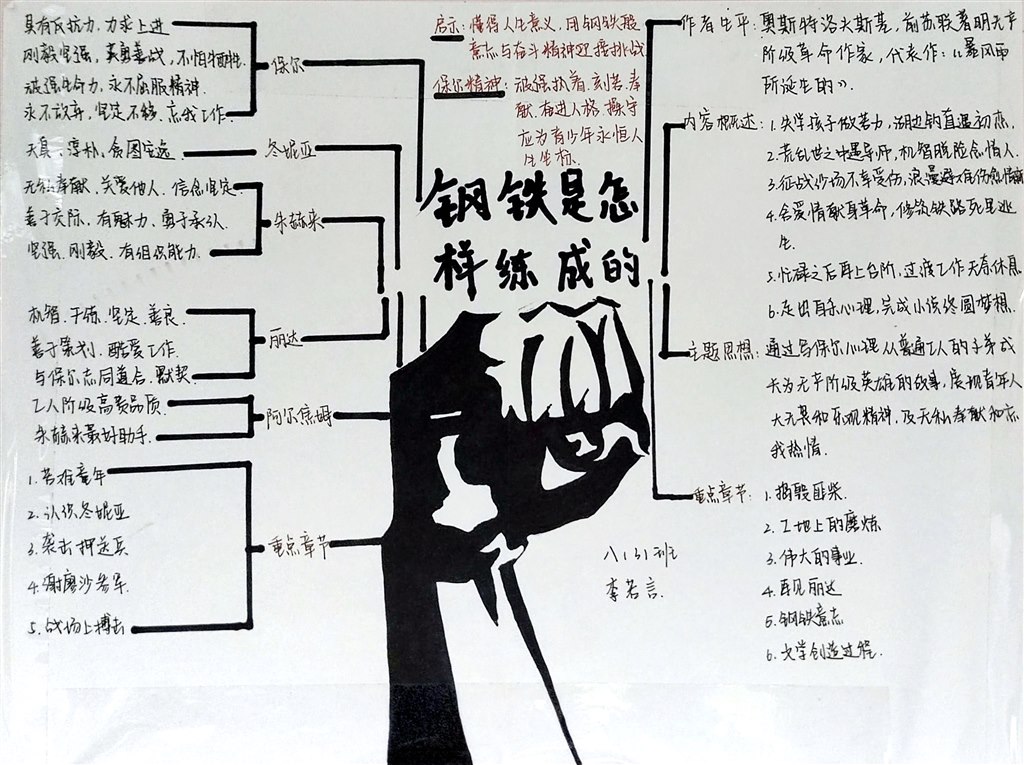 具有反抗力，力求上进
刚毅坚强，英勇善战，不怕牺牲
顽强生命力，永不屈服精神
永不放弃，坚定不移，忘我工作
保尔
天真、淳朴、贪图安逸
冬妮亚
无私奉献、关爱他人、信念坚定
善于交际、有魅力、勇于承认
坚强、刚毅、有组织能力
朱赫来
机智、干练、坚定、善良
善于策划、酷爱工作
与保尔志同道合、默契
丽达
工人阶级高贵品质
朱赫来最好助手
阿尔焦姆
1. 苦难童年
2. 认识冬妮亚
3. 袭击押送兵
4. 谢廖沙参军
5. 战场上搏击
重点章节
启示：懂得人生意义，用钢铁般
意志与奋斗精神迎接挑战
保尔精神：顽强执着、刻苦、奉
献、奋进人格、操守
应为青少年永恒人
生坐标
钢铁是怎
样练成的
八（3）班
李若言
作者生平：奥斯特洛夫斯基，前苏联著明无产
阶级革命作家，代表作：《暴风雨
所诞生的》.
内容概述：1. 失学孩子做苦力，湖边钓鱼遇初恋.
2. 荒乱世之中遇导师，机智脱险念情人.
3. 征战沙场不幸受伤，浪漫避难有伤
4. 舍爱情献身革命，修筑铁路死里逃
生.
5. 忙碌之后再上台阶，过渡工作无奈休息
6. 走出自杀心理，完成小说终圆梦想.
主题思想：通过写保尔心理从普通工人的子弟成
长为无产阶级英雄的故事，展现青年人
大无畏和乐观精神，及无私奉献和忘
我热情.
重点章节：1. 捣毁匪柴.
2. 工地上的磨炼
3. 伟大的事业.
4. 再见丽达
5. 钢铁意志
6. 文学创造过程.